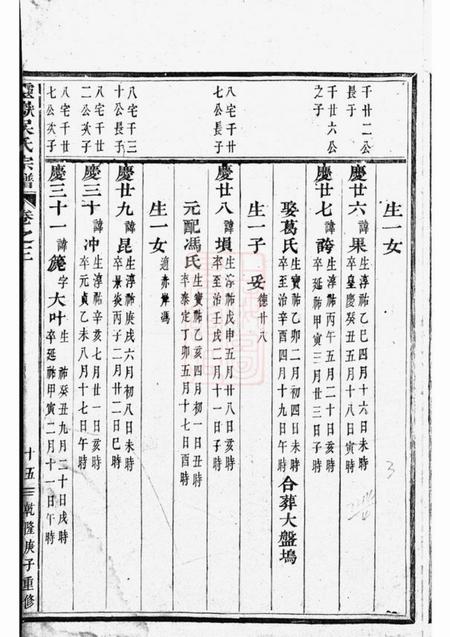 生一女
千廿二公長子
慶廿六 諱果 生淳祐乙巳四月十六日未時
卒皇慶癸丑五月十八日寅時
千廿六公之子
慶廿七 諱 生淳祐丙午五月二十日亥時
卒延祐甲寅三月廿三日子時
娶葛氏 生寶祐乙卯二月初四日未時
卒至治辛酉四月十九日午時
合葬大盤塢
生一子 妥 德廿八
八宅千廿七公長子
慶廿八 諱塤 生淳祐戊申五月廿八日亥時
卒至治壬戌二月十一日子時
元配馮氏 生寶祐乙亥四月初一日丑時
卒泰定丁卯五月十七日酉時
生一女 適赤岸馮
八宅千三十公長子
慶廿九 諱昆 生淳祐庚戌六月初八日未時
卒景炎丙子二月廿二日巳時
八宅千廿二公次子
慶三十 諱冲 生淳祐辛亥七月廿一日亥時
卒元貞乙未八月十七日午時
八宅千廿七公次子
慶三十一 諱箎字大叶 生 祐癸丑九月二十日戌時
卒延祐甲寅二月十一日午時
吳氏宗譜
卷之三
十五
乾隆庚子重修